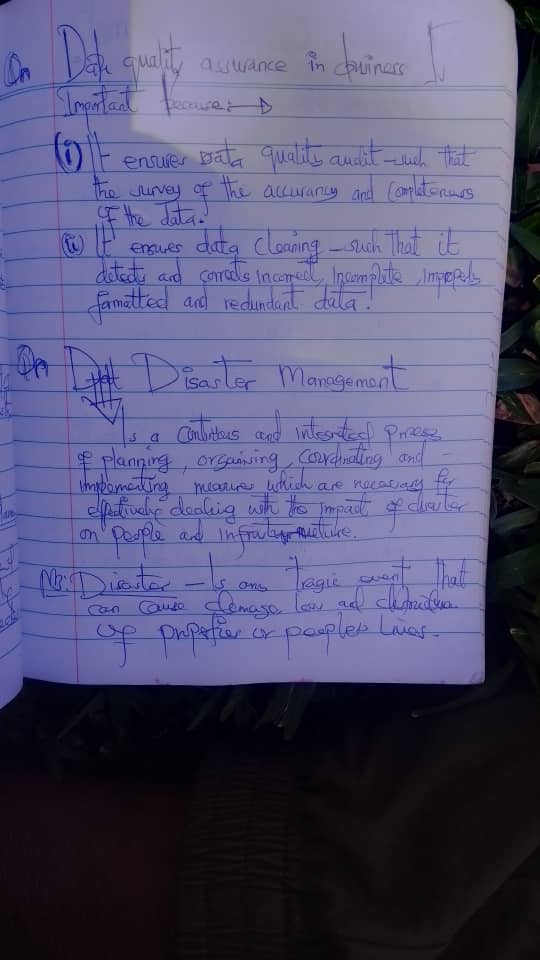 On Data quality assurance in business Is
Important because:→
(i) It ensures Data quality audit - such that
the survey of the accurancy and Completeness
of the data.
(ii) It ensures data Cleaning - such that it
detects and corrects Incorrect, Incomplete, improperly
formatted and redundant data.
On Disaster Management
Is a Continous and integrated Process
of planning, organising, coordinating and -
implementing measures which are necessary for
effectively dealing with the impact of disaster
on people and infrastructure.
NB: Disaster - Is any Tragic event that
can cause damage, loss and destruction
of properties or peoples Lives.